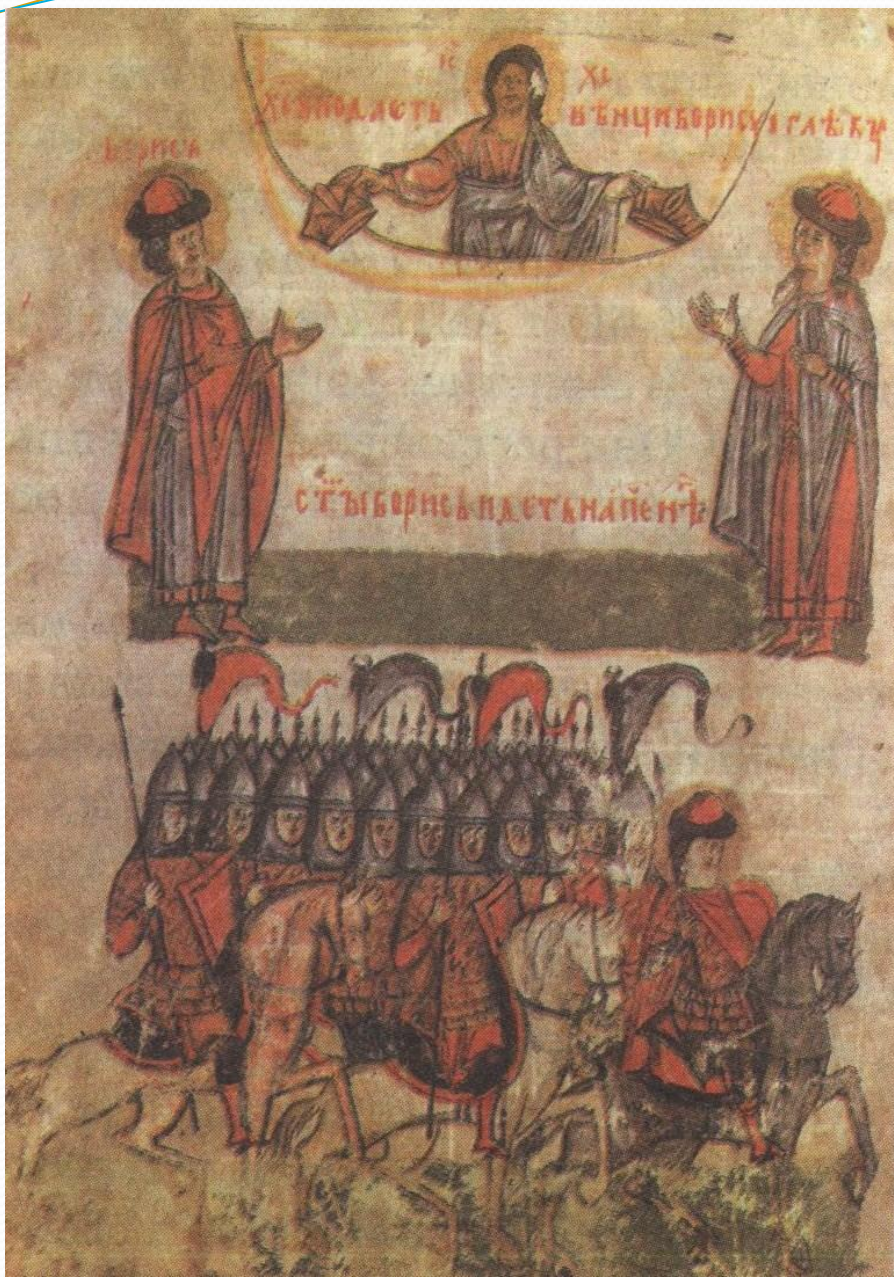 ІС ХС
ПОДАСТЬ ВѢНЦИ БОРИСУ И ГЛѢБꙊ
БОРИСЪ
СТЪІ БОРИСЬ ИДЕТЬ НА ПЕНѢ